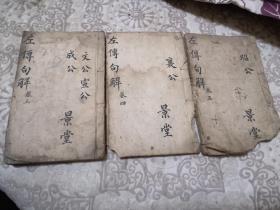 左傳句解
卷三
文公宣公
成公
景堂
左傳句解
卷四
襄公
景堂
左傳句解
卷五
昭公
景堂